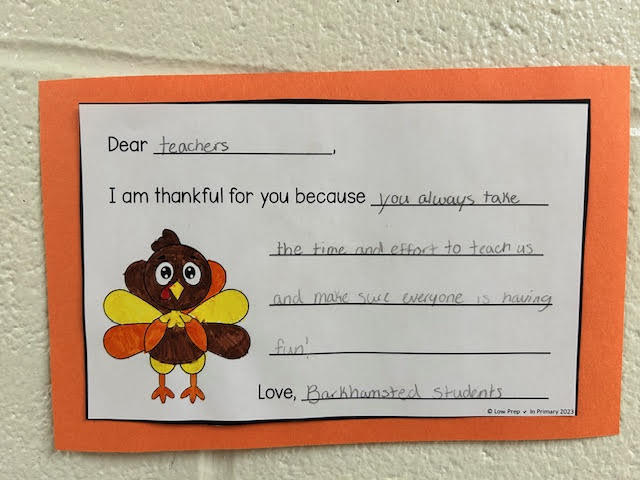 Dear teachers,
I am thankful for you because you always take
the time and effort to teach us
and make sure everyone is having
fun!
Love, Barkhamsted students
© Low Prep ✔ In Primary 2023